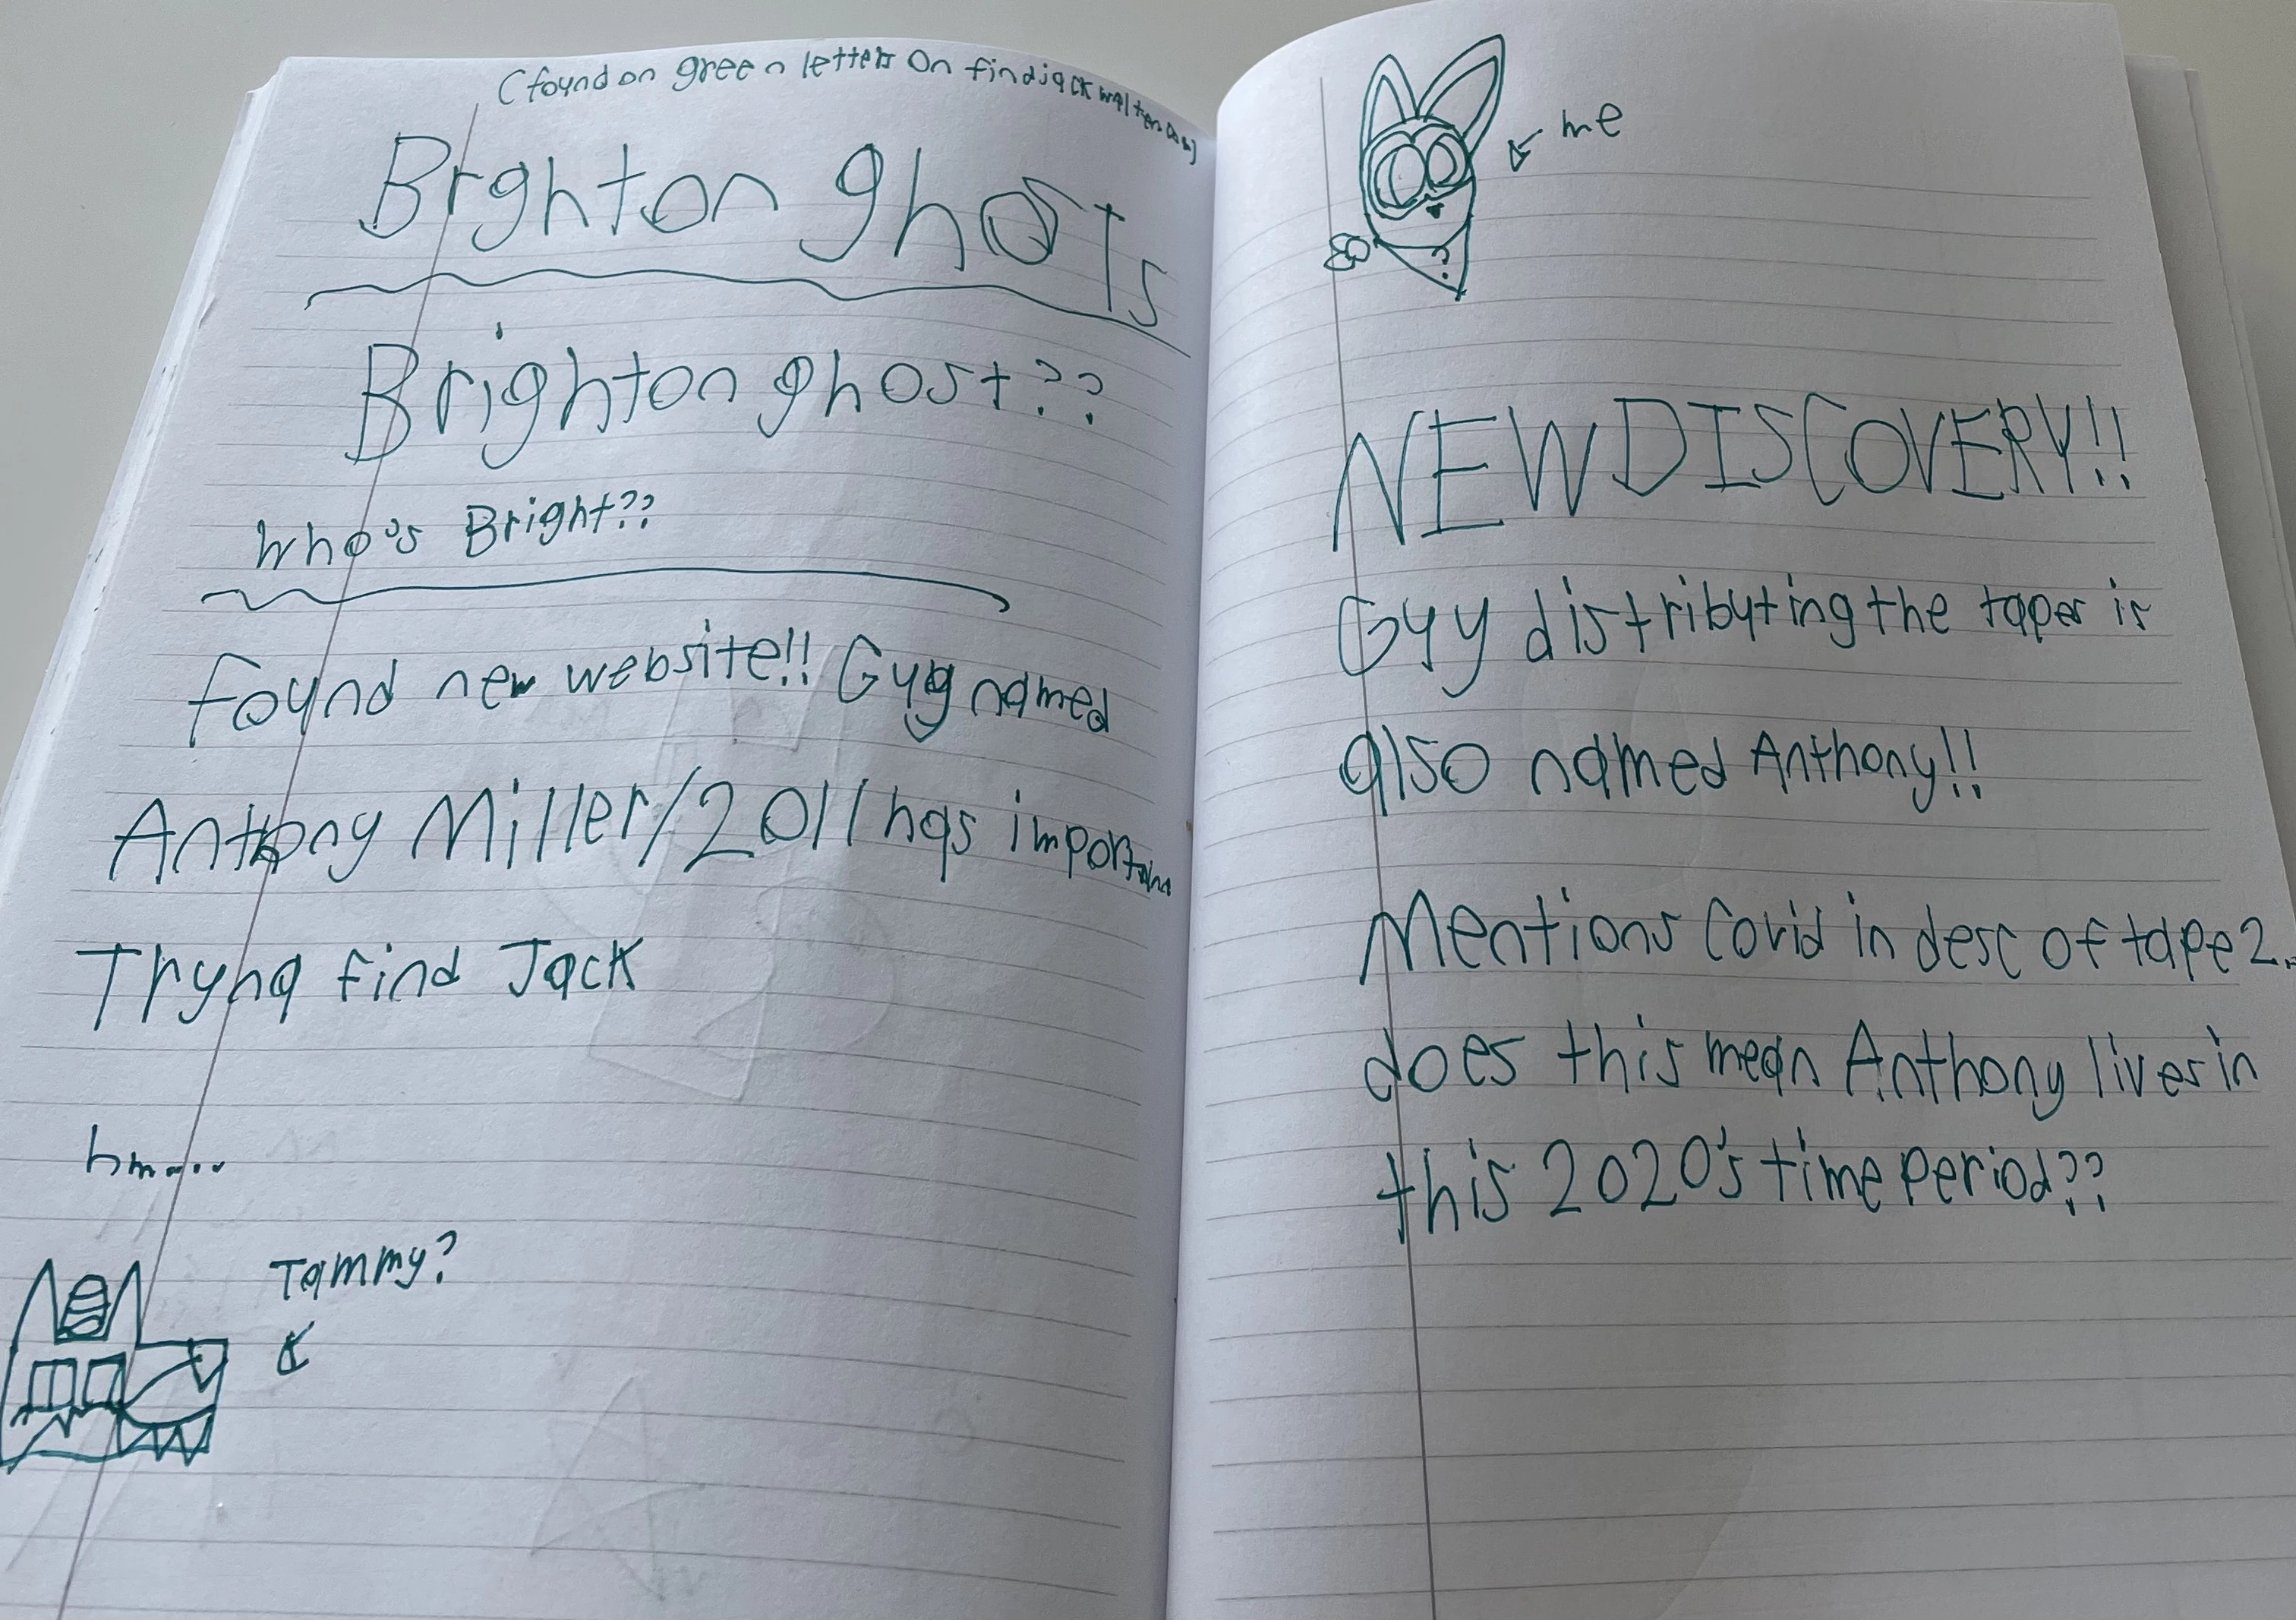 (found on green letters On findjackwalten.com)
Brghton ghosts
Brighton ghost??
who's Bright??
Found new website!! Guy named
Anthony Miller/2011 has
Tryna find Jack
hm....
Tammy?
me
NEW DISCOVERY!!
Guy distributing the tapes is
also named Anthony!!
Mentions Covid in desc of tape 2.
does this mean Anthony lives in
this 2020's time period??